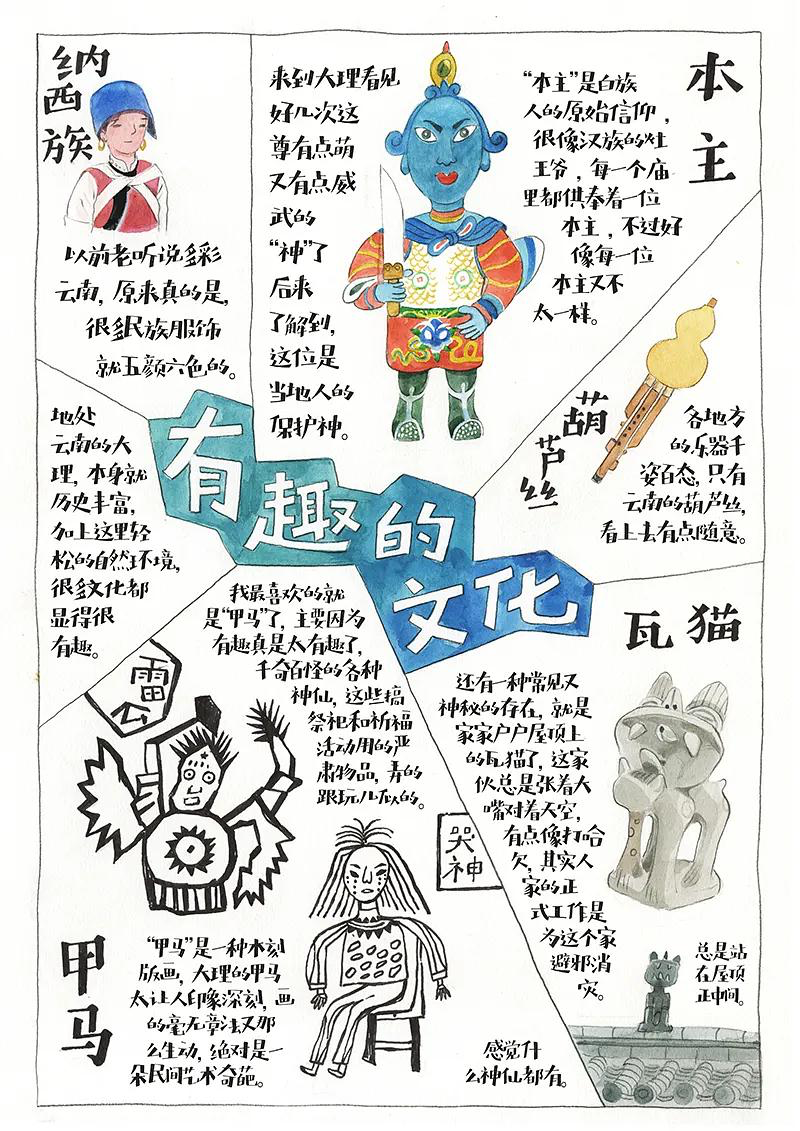 纳
西
族
以前老听说多彩
云南，原来真的是，
很多民族服饰
就五颜六色的。
来到大理看见
好几次这
尊有点萌
又有点威
武的
“神”了
后来
了解到，
这位是
当地人的
保护神。
本
主
“本主”是白族
人的原始信仰，
很像汉族的灶
王爷，每一个庙
里都供奉着一位
本主，不过好
像每一位
本主又不
太一样。
葫
芦
丝
各地方
的乐器千
姿百态，只有
云南的葫芦丝，
看上去有点随意。
地处
云南的大
理，本身就
历史丰富，
加上这里轻
松的自然环境，
很多文化都
显得很
有趣。
有趣的
文化
我最喜欢的就
是“甲马”了，主要因为
有趣真是太有趣了，
千奇百怪的各种
神仙，这些搞
祭祀和祈福
活动用的严
肃物品，弄的
跟玩儿似的。
雷
公
哭
神
甲
马
“甲马”是一种木刻
版画，大理的甲马
太让人印象深刻，画
的毫无章法又那
么生动，绝对是一
朵民间艺术奇葩。
感觉什
么神仙都有。
瓦猫
还有一种常见又
神秘的存在，就是
家家户户屋顶上
的瓦猫了，这家
伙总是张着大
嘴对着天空，
有点像打哈
欠，其实人
家的正
式工作是
为这个家
避邪消
灾。
总是站
在屋顶
正中间。